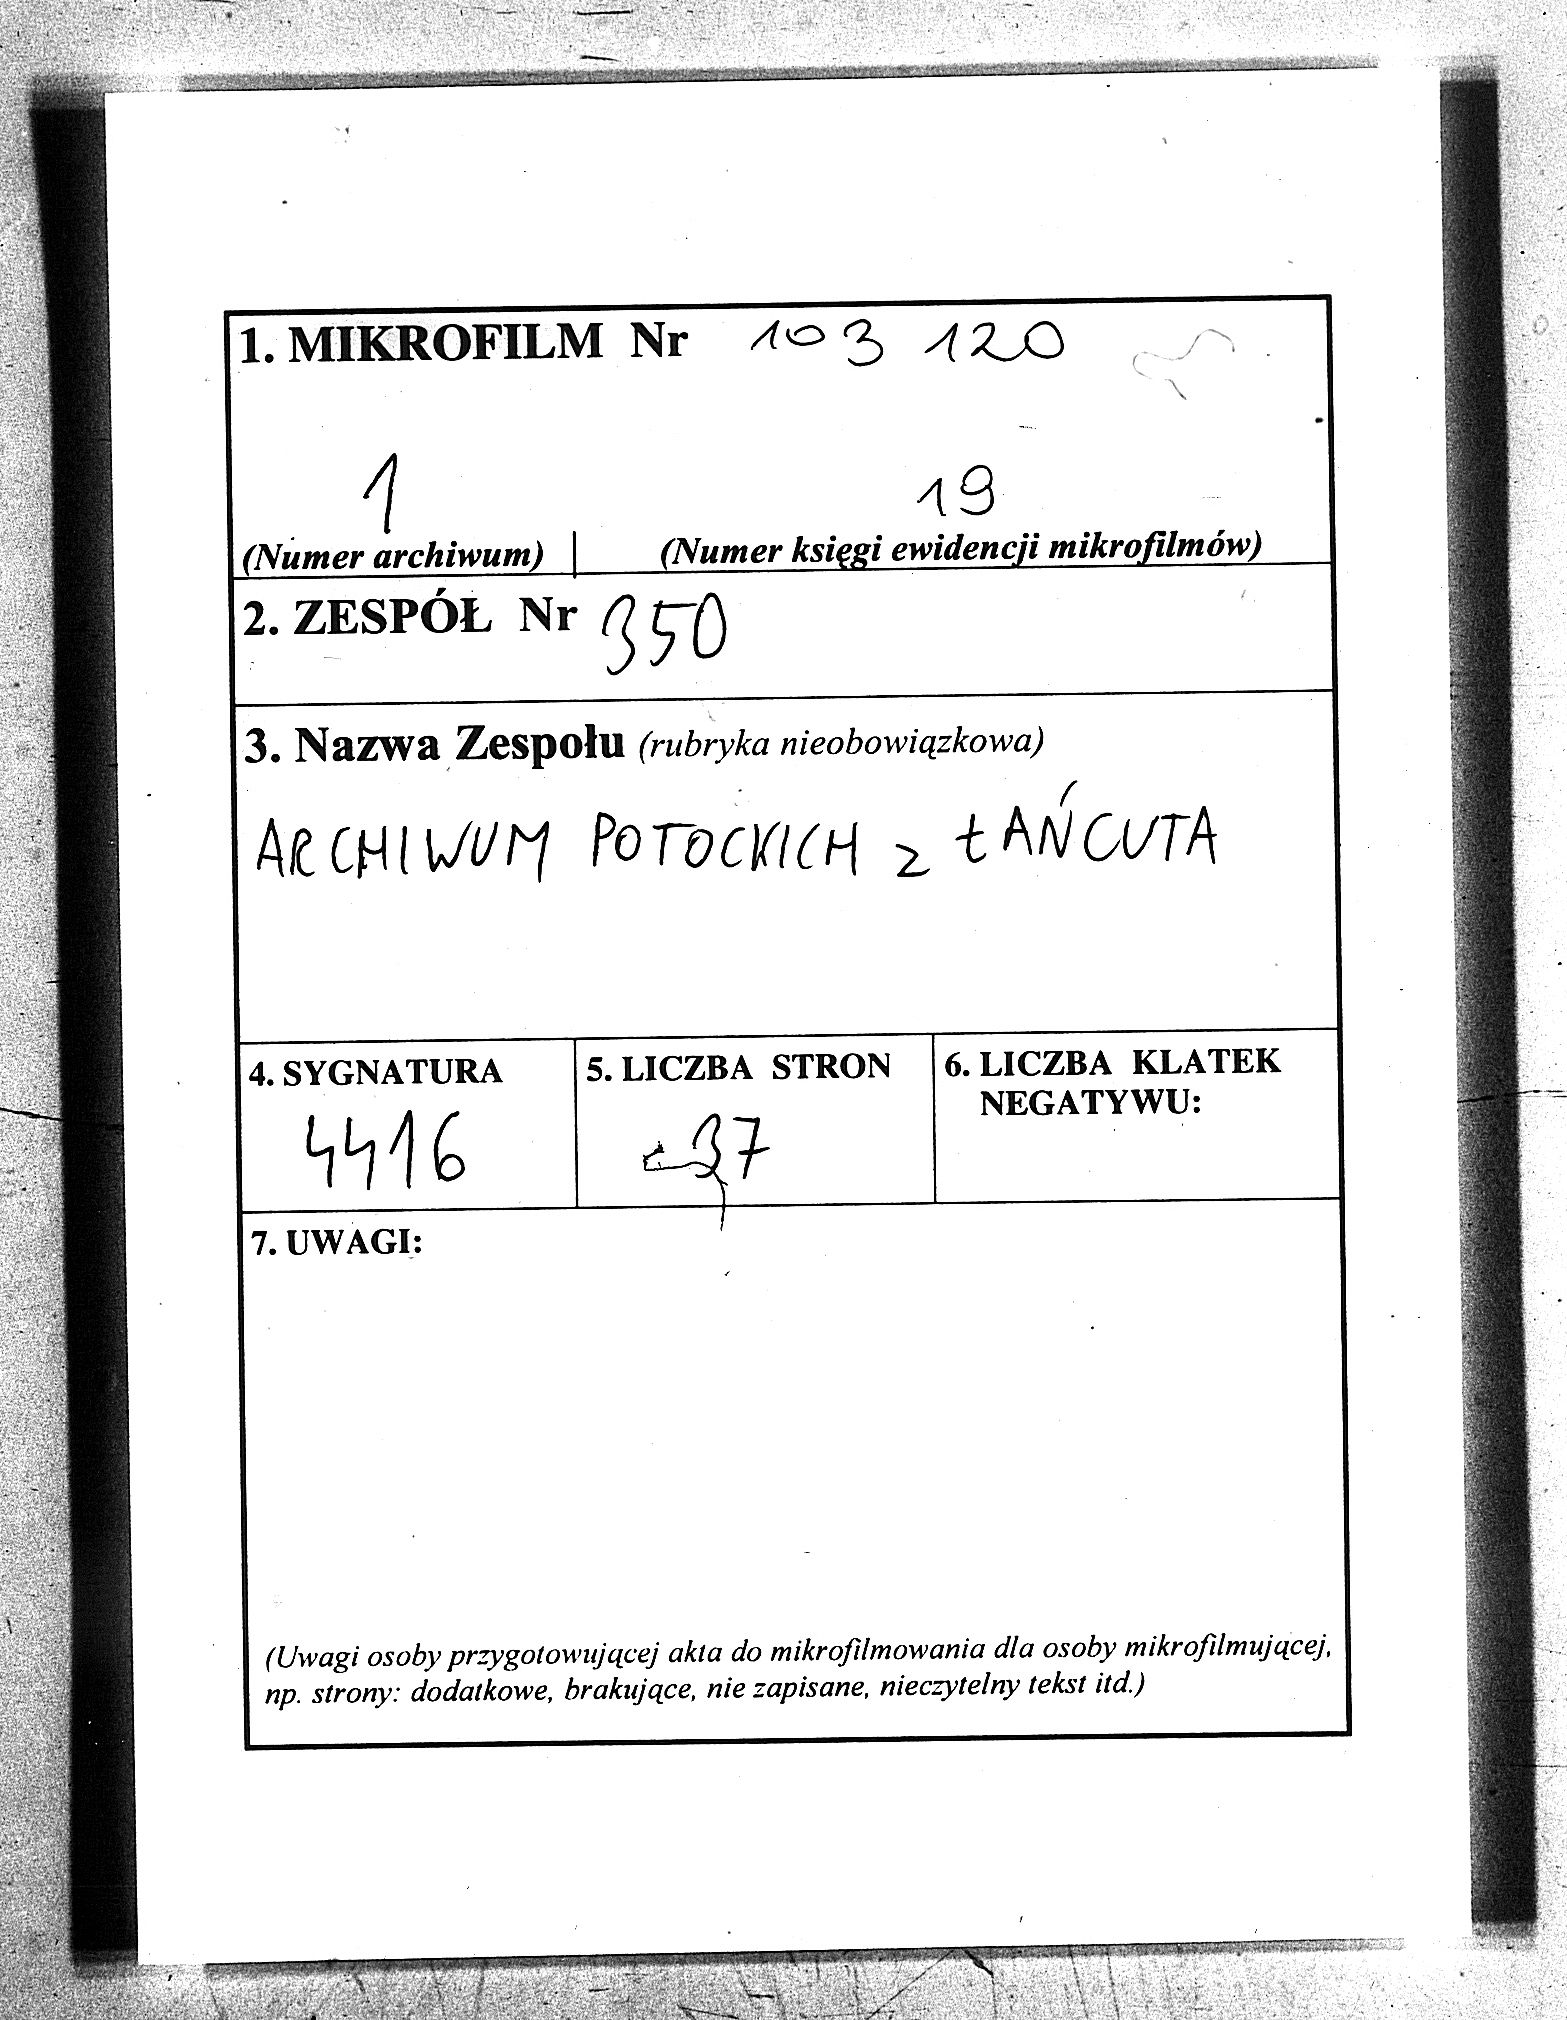 1. MIKROFILM Nr 103 120
1 19
(Numer archiwum) | (Numer księgi ewidencji mikrofilmów)
2. ZESPÓŁ Nr 350
3. Nazwa Zespołu (rubryka nieobowiązkowa)
ARCHIWUM POTOCKICH z ŁAŃCUTA
4. SYGNATURA
4416
5. LICZBA STRON
37
6. LICZBA KLATEK
NEGATYWU:
7. UWAGI:
(Uwagi osoby przygotowującej akta do mikrofilmowania dla osoby mikrofilmującej,
np. strony: dodatkowe, brakujące, nie zapisane, nieczytelny tekst itd.)